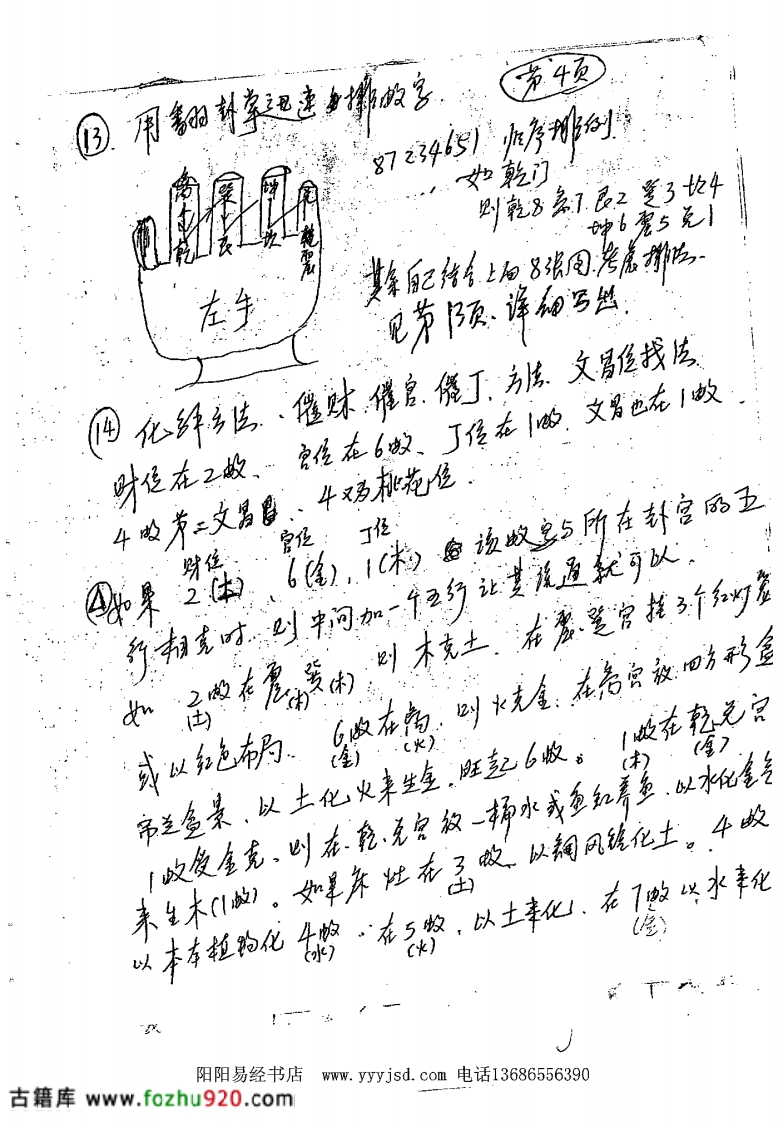 第4页
⑬. 用翻卦掌迅速排敂字.
87234651 顺序排列.
如乾门
则乾8 离7 艮2 巽3 坎4
坤6 震5 兑1
离 巽 坤 兑
乾 艮 坎 震
左手
其余自己结合上面8张图,考虑排法.
见第13页、详细写出.
⑭ 化解方法、催财、催官、催丁、方法、文昌位找法.
财位在2敂、官位在6敂、丁位在1敂、文昌也在1敂.
4敂第二文昌、4又为桃花位.
财位 官位 丁位
如果 2(土)、6(金)、1(木) 该敂字与所在卦宫的五
行相克时、则中间加一个五行让其流通就可以.
如 2敂在震、巽(木)、则木克土、在震、巽宫挂3个红灯笼
(土) (木)
或以红色布局、6敂在离、则火克金、在离宫放四方形盆
(金) (火)
景、以土化火来生金、旺起6敂。1敂在乾兑宫
(木) (金)
1敂受金克、则在乾、兑宫放一桶水或鱼缸养鱼、以水化金气
来生木(1敂)。如果床灶在3敂、以铜风铃化土。4敂
(土)
以本植物化4敂、在5敂、以土来化、在7敂以水来化
(水) (火) (金)
阳阳易经书店 www.yyyjsd.com 电话13686556390
古籍库 www.fozhu920.com